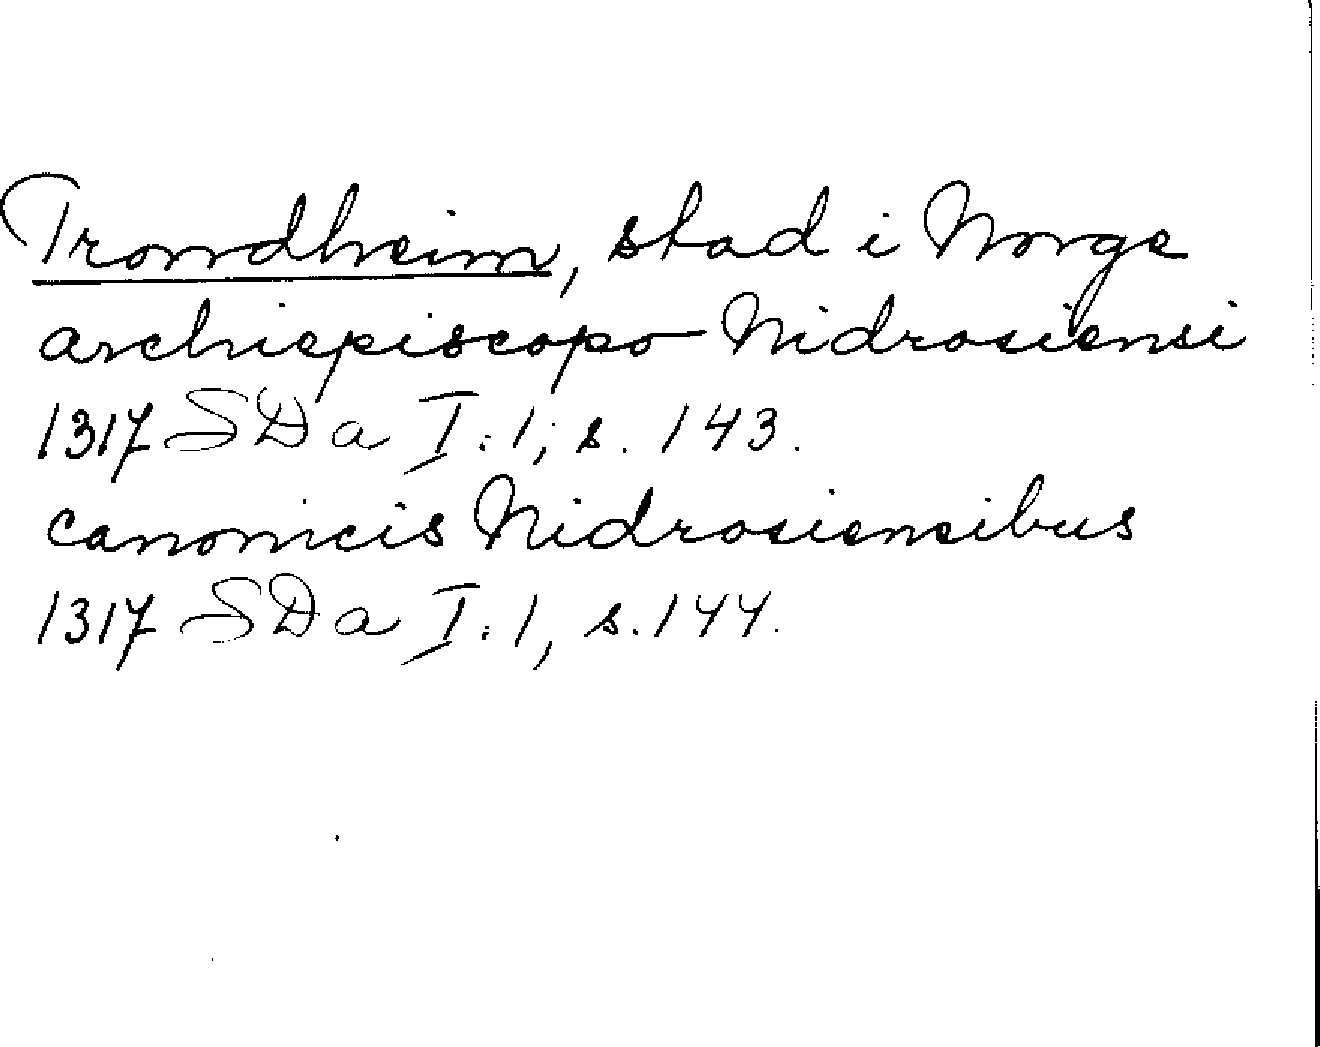 Trondheim, stad i Norge
archiepiscopo Nidrosiensi
1317 SDa I:1, s. 143.
canonicis Nidrosiensibus
1317 SDa I:1, s. 144.